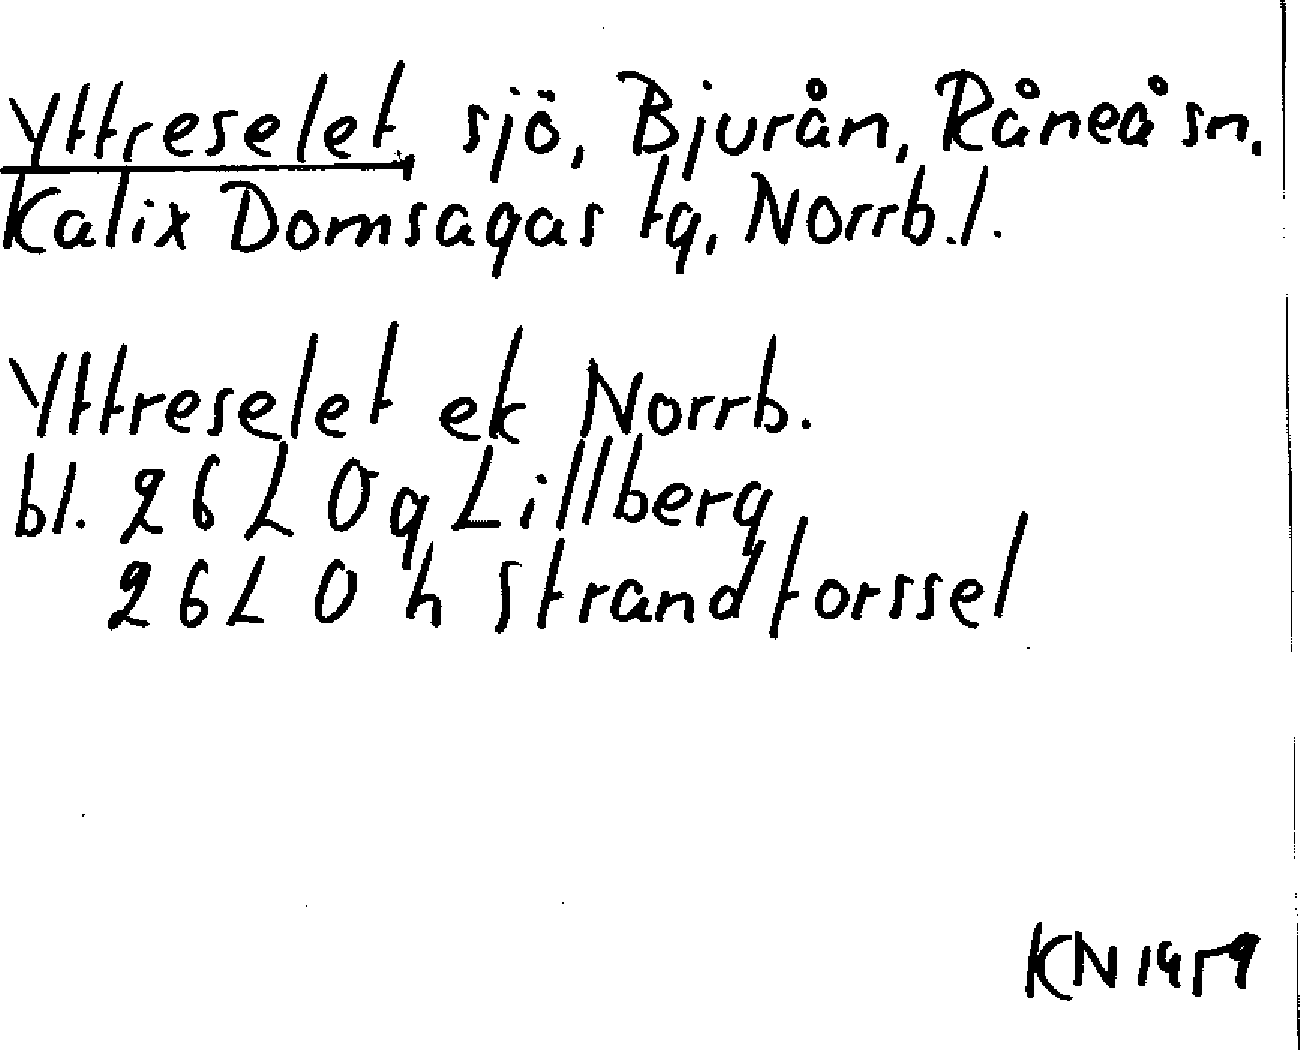 Yttreselet, sjö, Bjurån, Råneå sn.
Kalix Domsagas tg, Norrb.l.
Yttreselet ek Norrb.
bl. 26 L 0g Lillberg
26 L 0 h Strandforssel
KN 1959